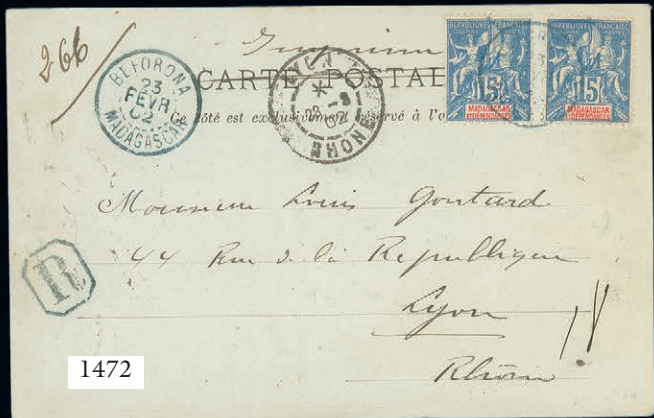 266
Imprimé
BEFORONA
23
FEVR
02
MADAGASCAR
CARTE POSTALE
Ce côté est exclusivement réservé à l'a
LYON
28 -3
02
RHONE
REPUBLIQUE FRANÇAISE
15
MADAGASCAR
ET DÉPENDANCES
REPUBLIQUE FRANÇAISE
15
MADAGASCAR
ET DÉPENDANCES
Monsieur Louis Goutard
44 Rue de la Republique
Lyon
Rhône
R
1472